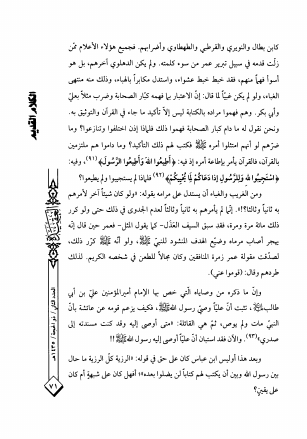 كابن بطال والنويري والقرطبي والطهطاوي وأضرابهم. فجميع هؤلاء الأعلام ممّن
زلّت قدمه في سبيل تبرير عمر من سوء كلمته. ولم يكن الدهلوي آخرهم، بل هو
أسوأ فهماً منهم، فقد خبط خبط عشواء، واستدل مكابراً بالهباء، وذلك منه منتهى
الغباء، ولو لم يكن غبيّاً لما قال: إنّ الاعتبار بما فهمه كبار الصحابة وضرب مثلاً بعليّ
وأبي بكر. وهم فهموا مراده بالكتابة ليس إلاّ تأكيد ما جاء في القرآن والتوثيق به.
ونحن نقول له ما دام كبار الصحابة فهموا ذلك فلماذا إذن اختلفوا وتنازعوا؟ وما
ضرّهم لو أنهم امتثلوا أمره ﷺ فكتب لهم ذلك التأكيد؟ وما داموا هم ملتزمين
بالقرآن، فالقرآن يأمر بإطاعة أمره إذ فيه: ﴿أَطِيعُوا اللهَ وَأَطِيعُوا الرَّسُولَ﴾(٩١)، وفيه:
﴿اسْتَجِيبُوا لِلَّهِ وَلِلرَّسُولِ إِذَا دَعَاكُمْ لِمَا يُحْيِيكُمْ﴾(٩٢) فلماذا لم يستجيبوا ولم يطيعوا؟
ومن الغريب والغباء أن يستدل على مرامه بقوله: «ولو كان شيئاً آخر لأمرهم
به ثانياً وثالثاً؟!». إنّما لم يأمرهم به ثانياً وثالثاً لعدم الجدوى في ذلك حتى ولو كرر
ذلك مائة مرة ومرة، فقد سبق السيف العذل- كما يقول المثل- فعمر حين قال إنّه
يهجر أصاب مرماه وضيّع الهدف المنشود للنبيّ ﷺ، ولو أنّه ﷺ كرّر ذلك،
لصدّقت مقولة عمر زمرة المنافقين وكان مجالاً للطعن في شخصه الكريم. لذلك
طردهم وقال: (قوموا عني).
وإنّ ما ذكره من وصاياه الّتي خص بها الإمام أميرالمؤمنين عليّ بن أبي
طالب، تثبت أنّ عليّاً وصيّ رسول الله ﷺ، فكيف يزعم قومه عن عائشة بأنّ
النبيّ مات ولم يوص، ثمّ هي القائلة: «متى أوصى إليه وقد كنت مسندته إلى
صدري»(٩٣). والآن فقد استبان أنّ عليّاً أوصى إليه رسول الله ﷺ!!
وبعد هذا أوليس ابن عباس كان على حق في قوله: «الرزية كلّ الرزية ما حال
بين رسول الله وبين أن يكتب لهم كتاباً لن يضلوا بعده»؟ أفهل كان على شبهةٍ أم كان
على يقين؟
٧١